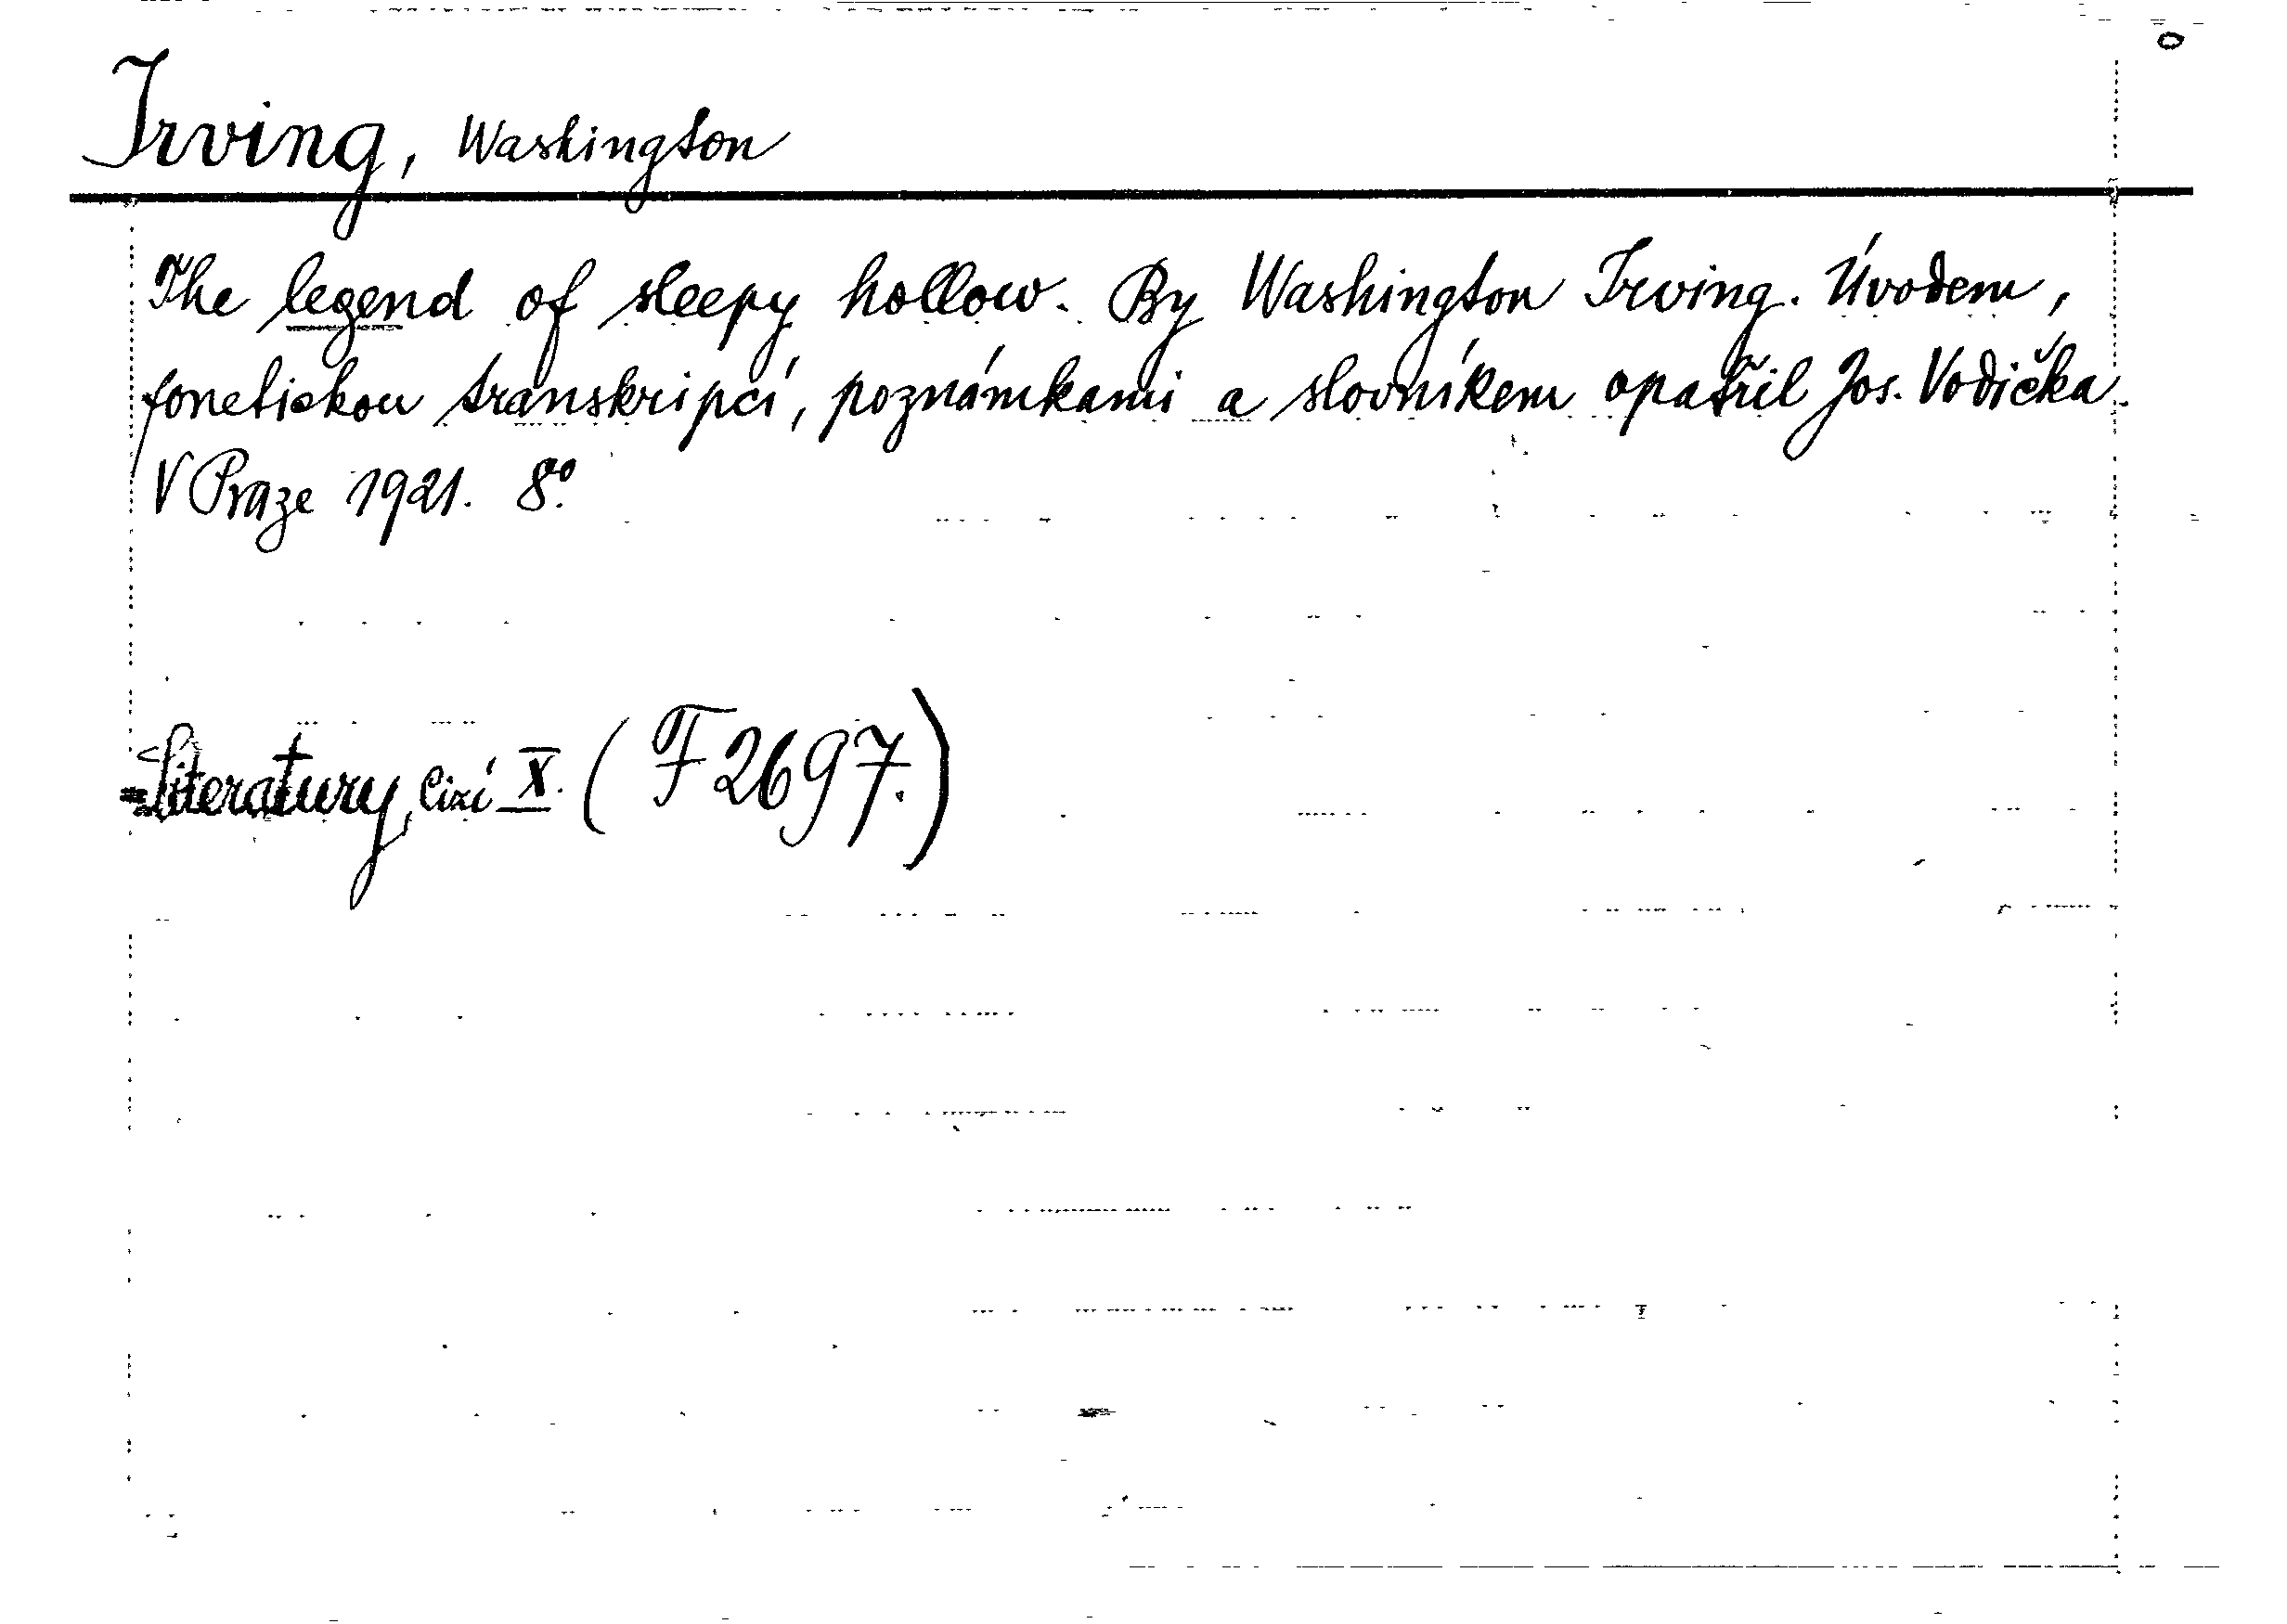 Irving, Washington
The legend of sleepy hollow. By Washington Irving. Úvodem,
fonetickou transkripcí, poznámkami a slovníkem opatřil Jos. Vodička.
V Praze 1921. 8°.
Literatury cizí X. (F 2697.)